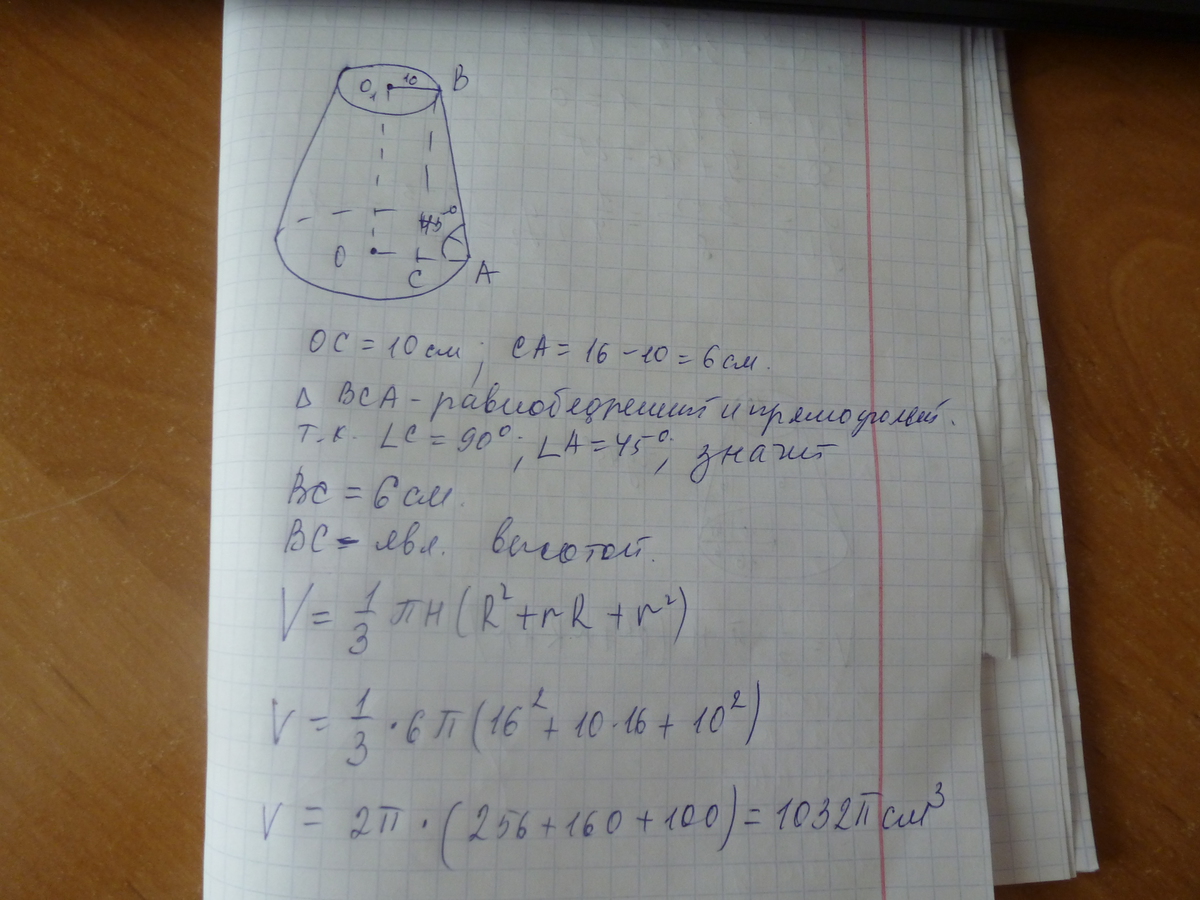 O₁ 10 B
45°
O C A
OC = 10 см; CA = 16 - 10 = 6 см.
Δ BCA - равнобедренный и прямоугольный.
т.к. ∠C = 90°; ∠A = 45°; значит
BC = 6 см.
BC - явл. высотой.
V = 1/3 πH (R² + rR + r²)
V = 1/3 · 6π (16² + 10·16 + 10²)
V = 2π · (256 + 160 + 100) = 1032π см³